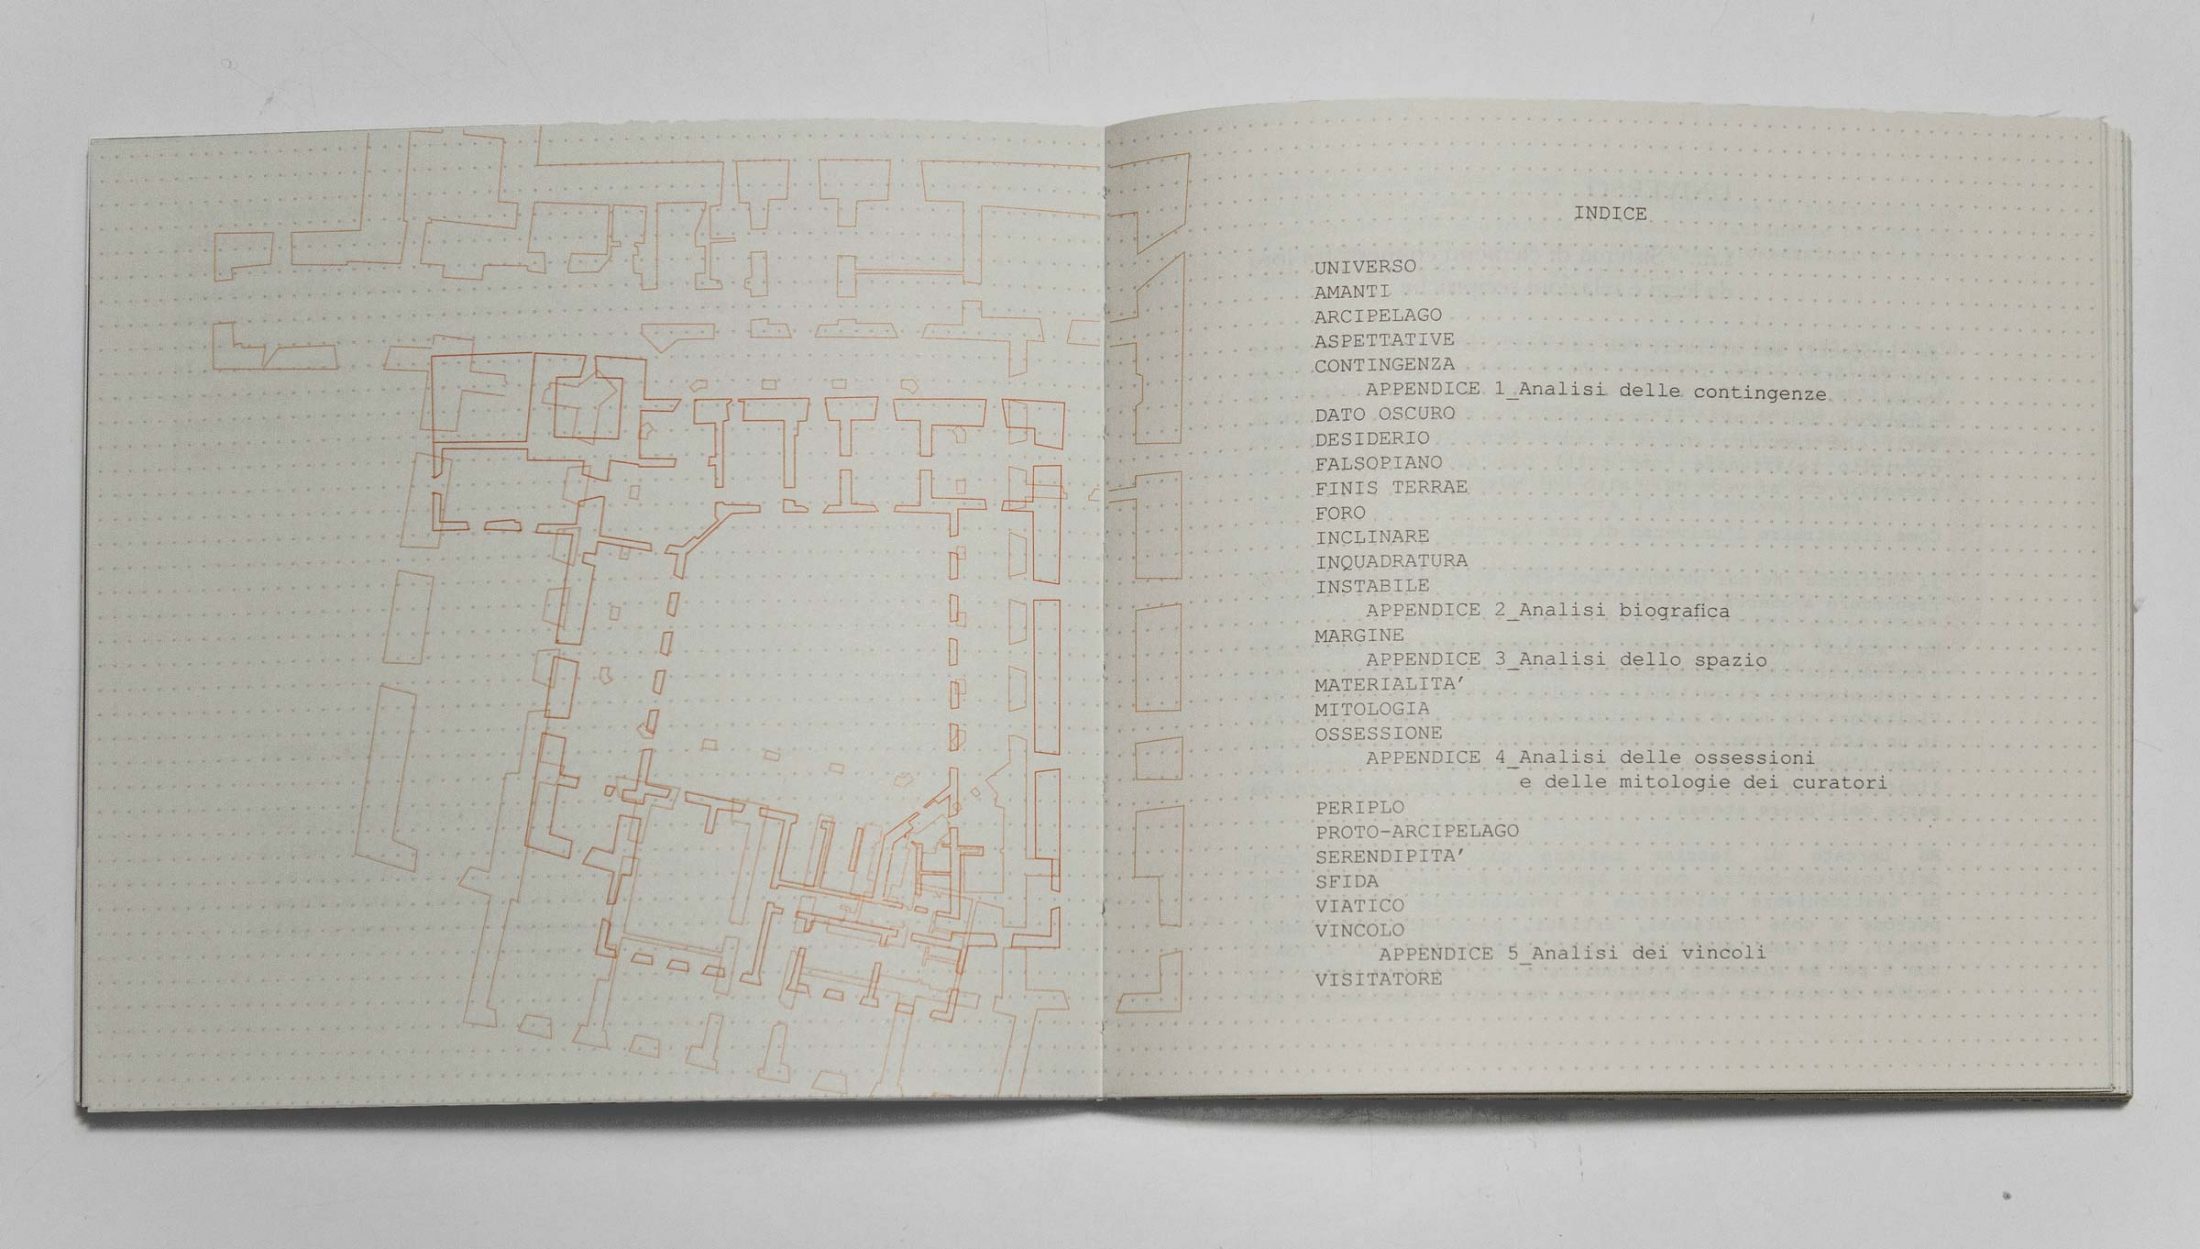 INDICE
UNIVERSO
AMANTI
ARCIPELAGO
ASPETTATIVE
CONTINGENZA
APPENDICE 1_Analisi delle contingenze
DATO OSCURO
DESIDERIO
FALSOPIANO
FINIS TERRAE
FORO
INCLINARE
INQUADRATURA
INSTABILE
APPENDICE 2_Analisi biografica
MARGINE
APPENDICE 3_Analisi dello spazio
MATERIALITA’
MITOLOGIA
OSSESSIONE
APPENDICE 4_Analisi delle ossessioni
e delle mitologie dei curatori
PERIPLO
PROTO-ARCIPELAGO
SERENDIPITA’
SFIDA
VIATICO
VINCOLO
APPENDICE 5_Analisi dei vincoli
VISITATORE